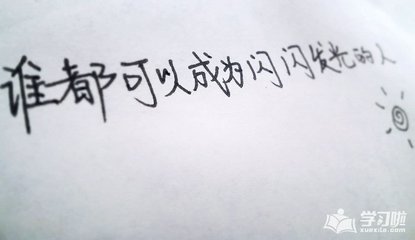 谁都可以成为闪闪发光的人
学习啦
xuexila.com